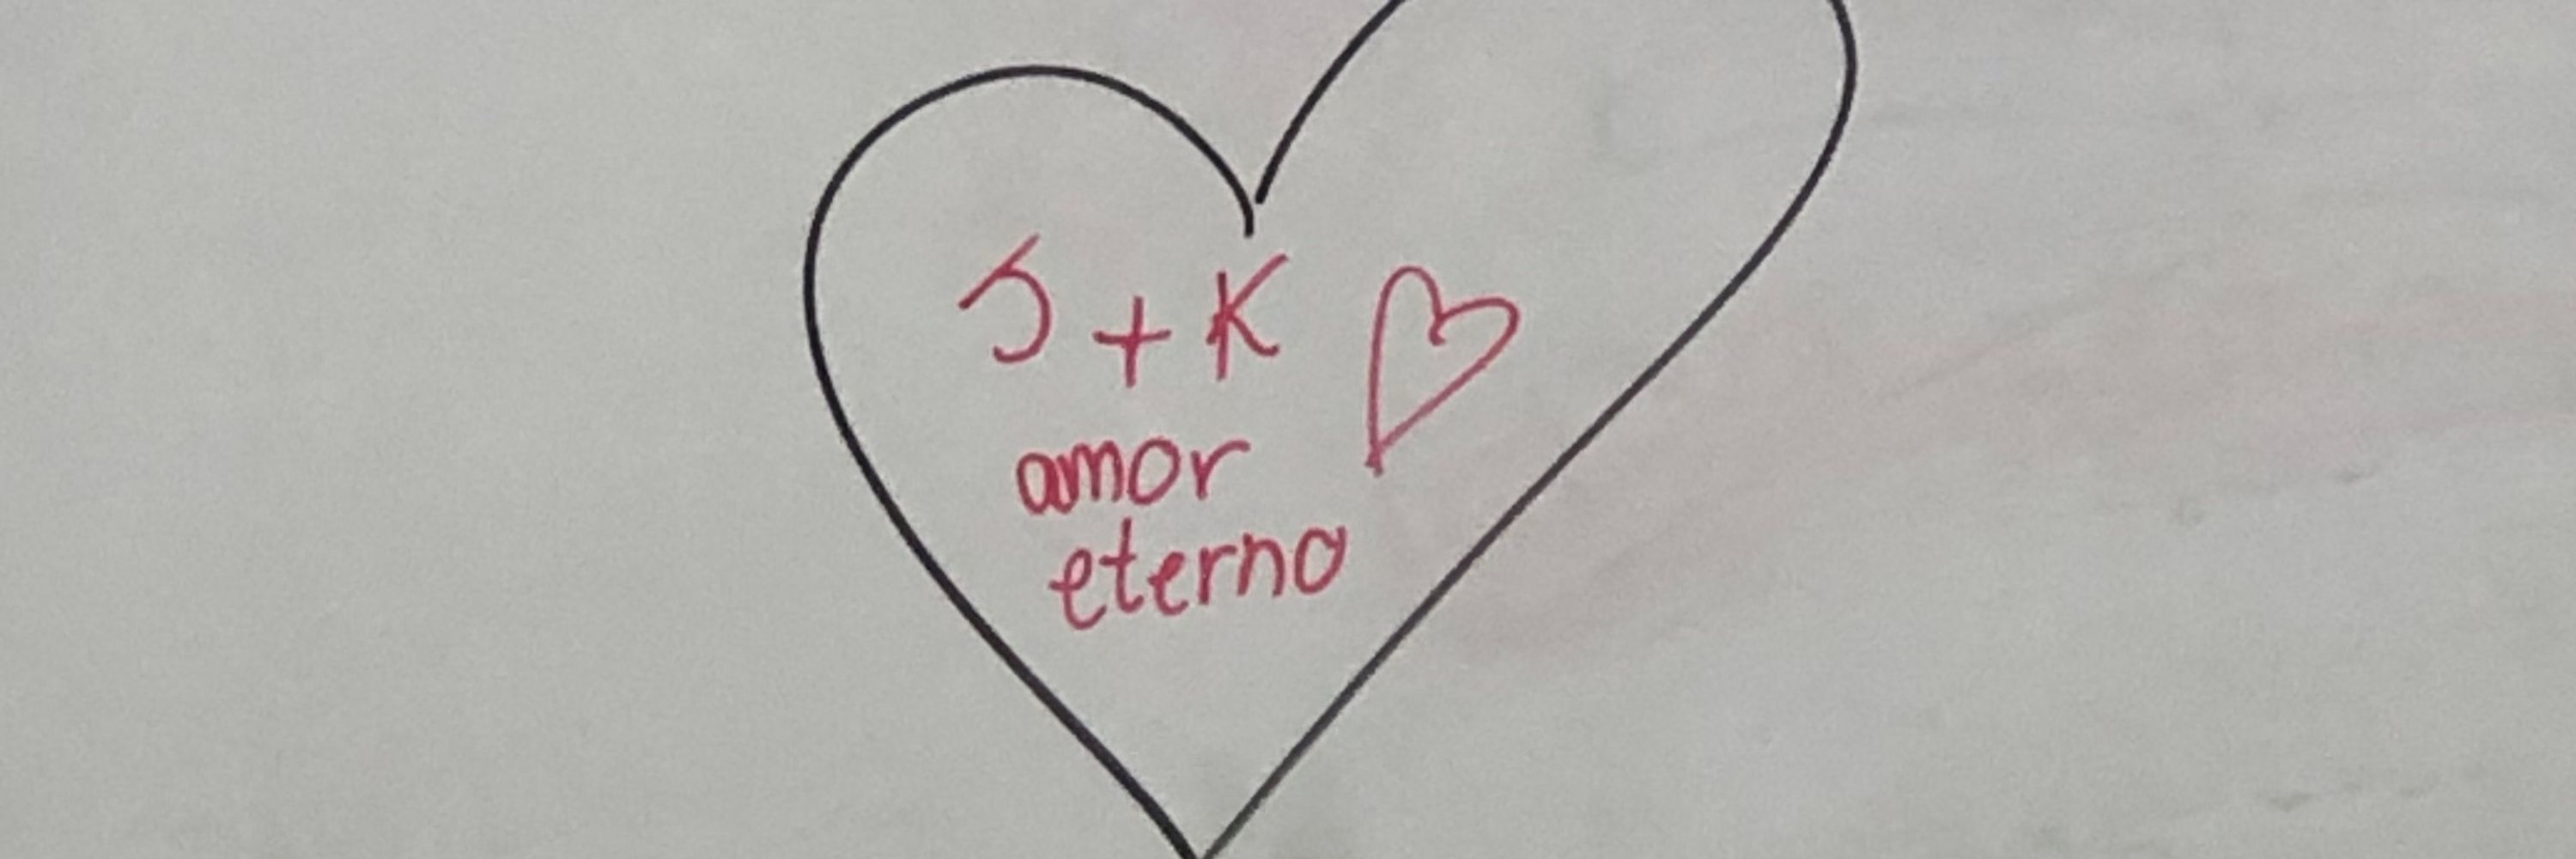 J + K ♡
amor
eterno